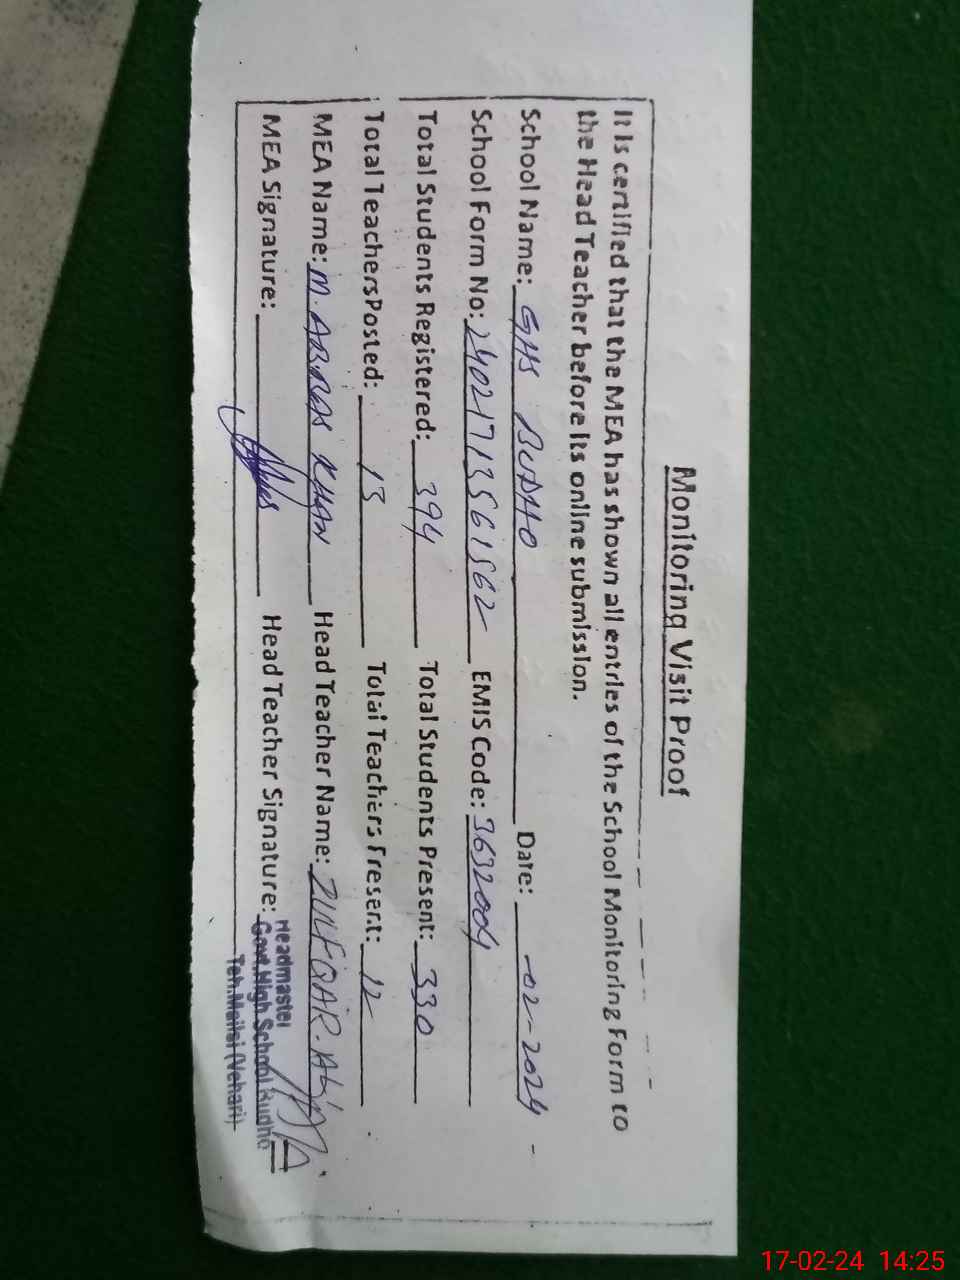 Monitoring Visit Proof
It is certified that the MEA has shown all entries of the School Monitoring Form to
the Head Teacher before its online submission.
School Name: GHS BUDHO Date: -02-2024
School Form No: 24021713561562 EMIS Code: 3632004
Total Students Registered: 394 Total Students Present: 330
Total Teachers Posted: 13 Total Teachers Present: 12
MEA Name: M. ABBAS KHAN Head Teacher Name: ZULFQAR. ALI
MEA Signature: Head Teacher Signature:
Headmaster
Govt. High School Budho
Teh. Mailsi (Vehari)
17-02-24 14:25